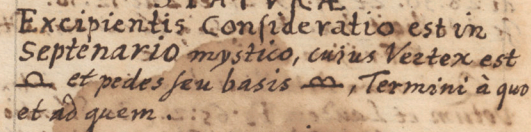 Excipientis Consideratio est in
Septenario mystico, cuius Vertex est
et pedes seu basis , Termini à quo
et ad quem .